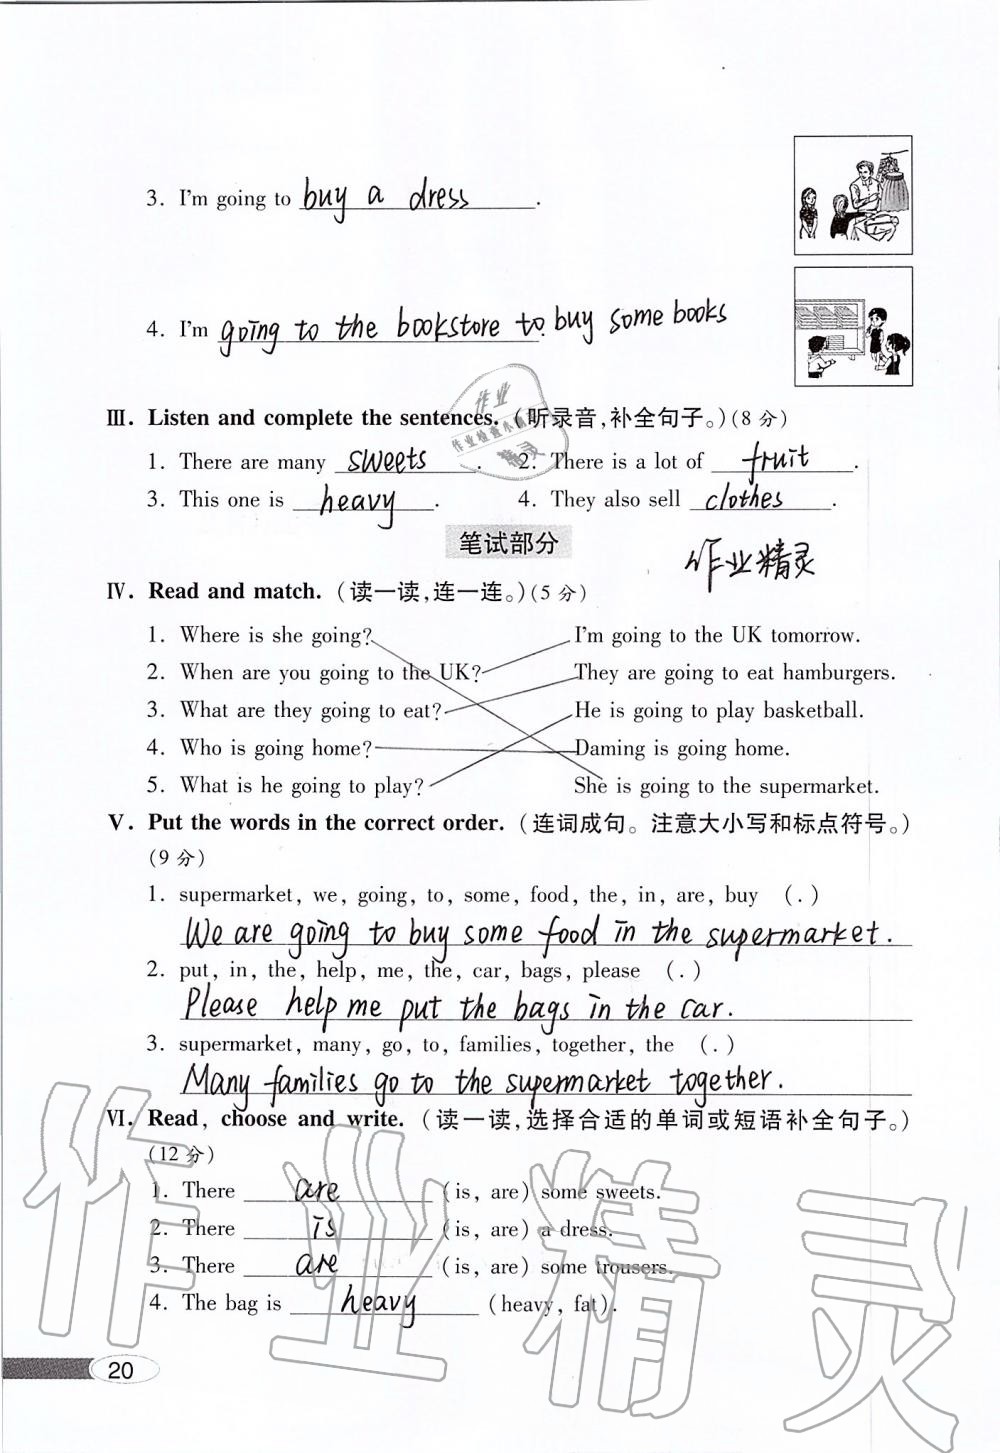 3. I'm going to buy a dress.
4. I'm going to the bookstore to buy some books
Ⅲ. Listen and complete the sentences.(听录音,补全句子。)(8分)
1. There are many sweets. 2. There is a lot of fruit.
3. This one is heavy. 4. They also sell clothes.
笔试部分
作业精灵
Ⅳ. Read and match.(读一读,连一连。)(5分)
1. Where is she going? I'm going to the UK tomorrow.
2. When are you going to the UK? They are going to eat hamburgers.
3. What are they going to eat? He is going to play basketball.
4. Who is going home? Daming is going home.
5. What is he going to play? She is going to the supermarket.
Ⅴ. Put the words in the correct order.(连词成句。注意大小写和标点符号。)
(9分)
1. supermarket, we, going, to, some, food, the, in, are, buy (.)
We are going to buy some food in the supermarket.
2. put, in, the, help, me, the, car, bags, please (.)
Please help me put the bags in the car.
3. supermarket, many, go, to, families, together, the (.)
Many families go to the supermarket together.
Ⅵ. Read, choose and write.(读一读,选择合适的单词或短语补全句子。)
(12分)
1. There are (is, are) some sweets.
2. There is (is, are) a dress.
3. There are (is, are) some trousers.
4. The bag is heavy (heavy, fat).
作业精灵
20